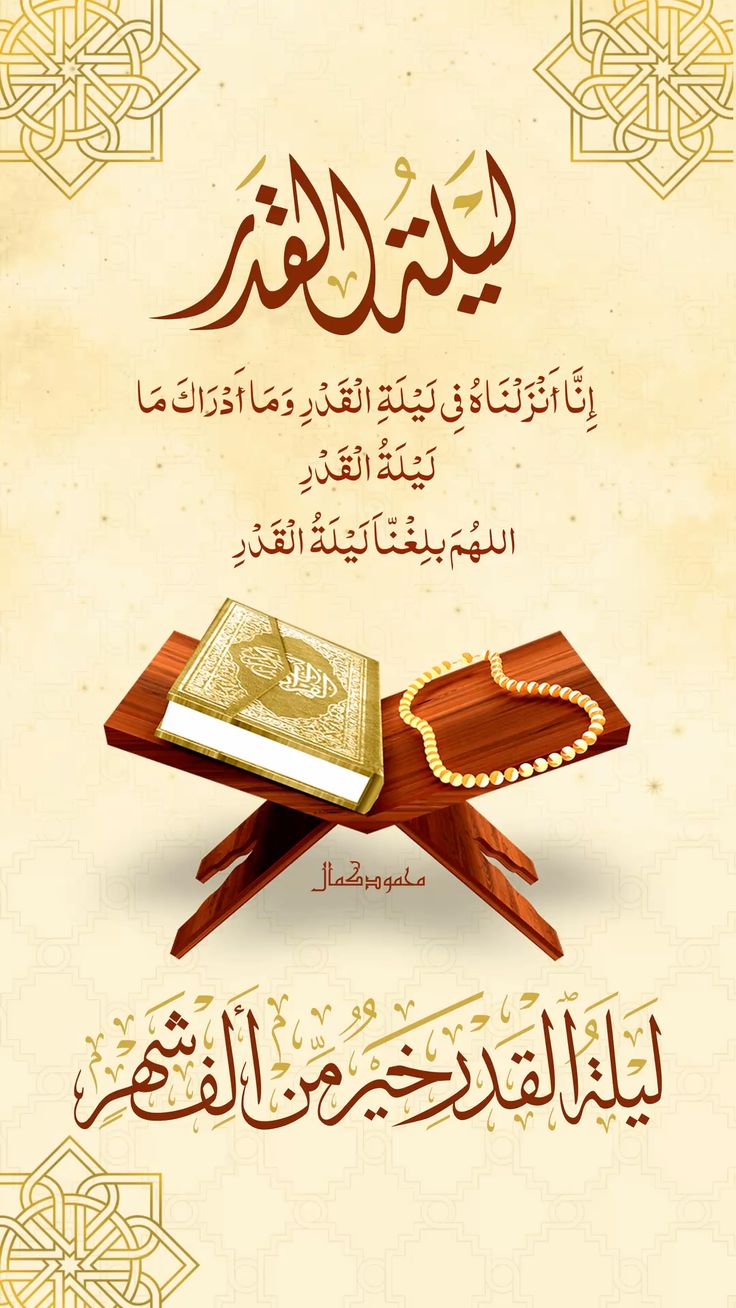 لَيْلَةُ القَدَر
إِنَّا أَنْزَلْنَاهُ فِي لَيْلَةِ الْقَدْرِ وَمَا أَدْرَاكَ مَا
لَيْلَةُ الْقَدْرِ
اللهُمَ بلِغْنّاَ لَيْلَةُ الْقَدْرِ
محمود كمال
لَيْلَةُ ٱلْقَدْرِ خَيْرٌ مِّنْ أَلْفِ شَهْرٍ